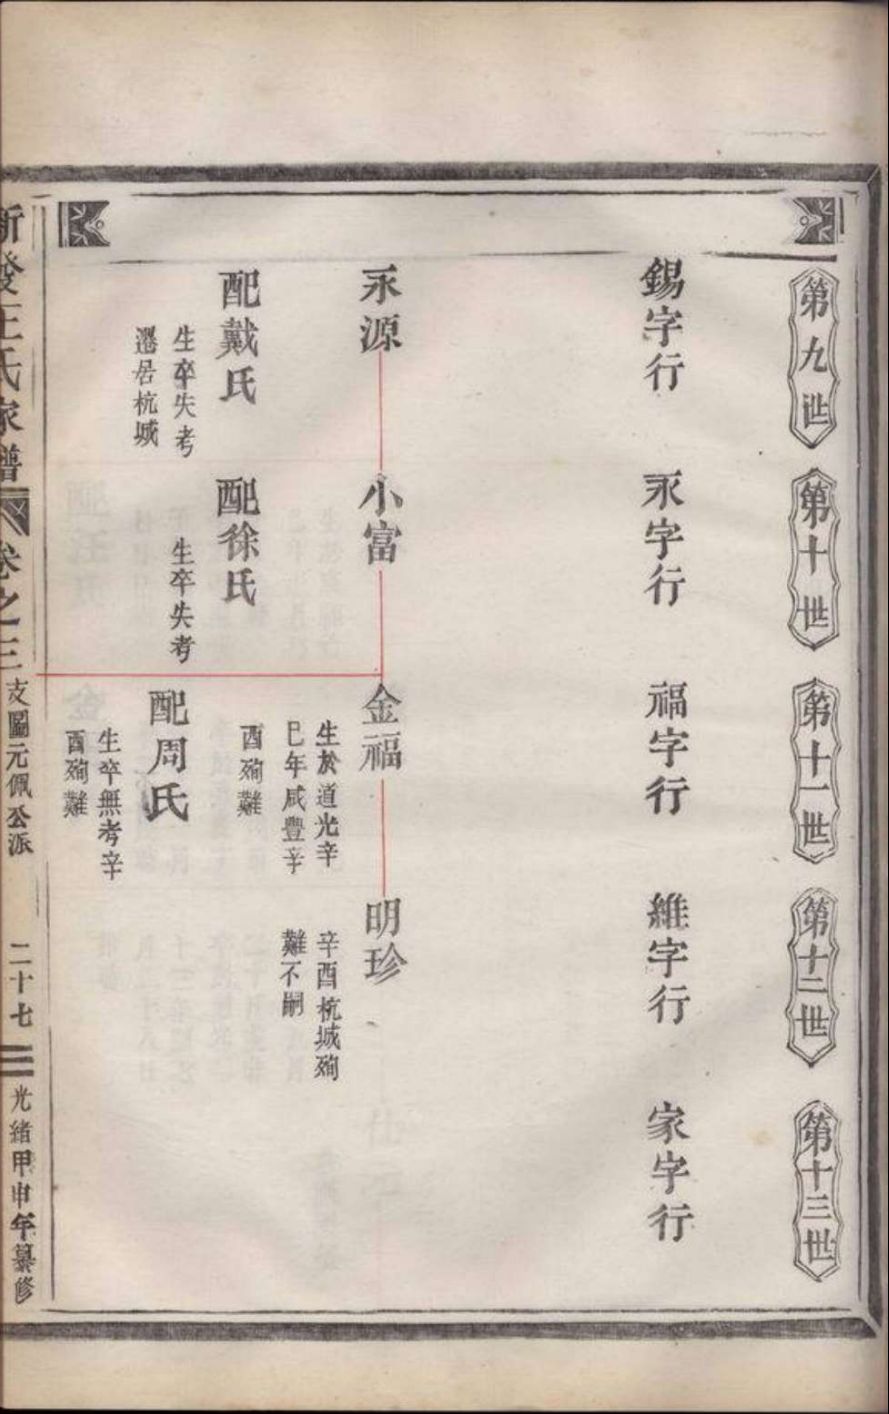 第九世
第十世
第十一世
第十二世
第十三世
錫字行
永字行
福字行
維字行
家字行
永源
小富
金福
明珍
生於道光辛
巳年咸豐辛
酉殉難
辛酉杭城殉
難不嗣
配戴氏
生卒失考
遷居杭城
配徐氏
生卒失考
配周氏
生卒無考辛
酉殉難
新發王氏家譜
卷之三
支圖元佩公派
二十七
光緒甲申年纂修